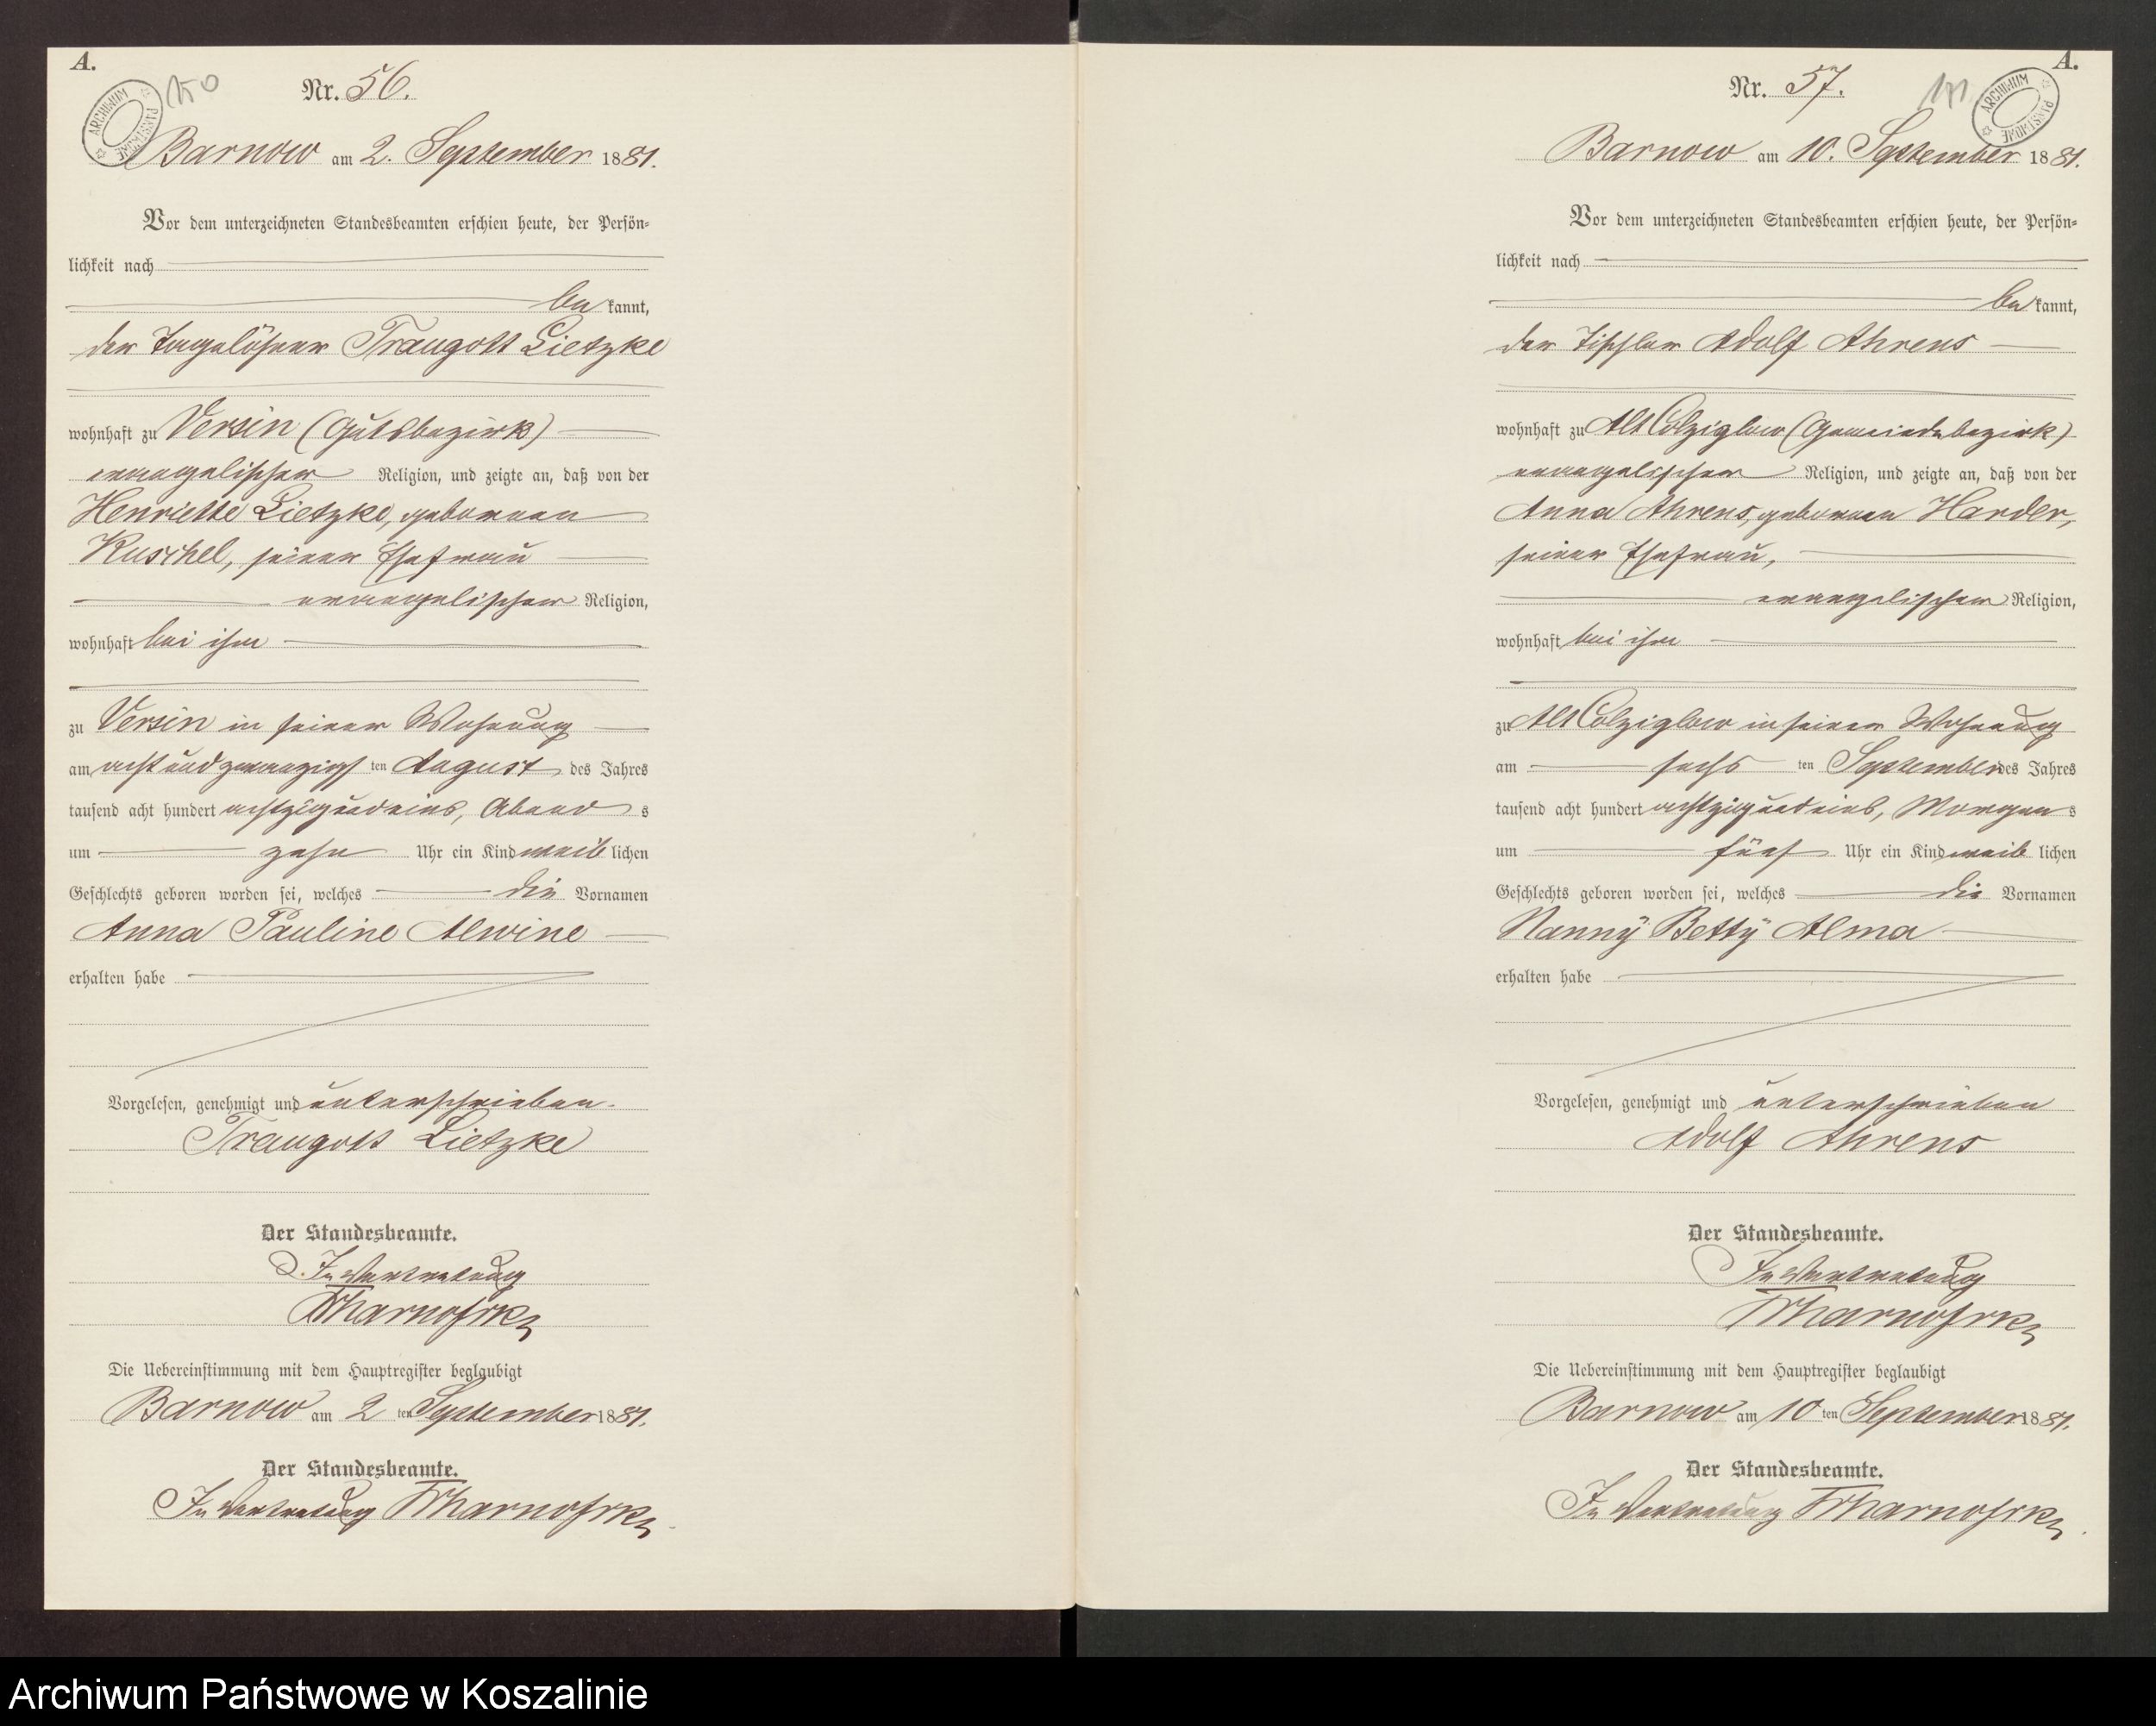 A.
ARCHIWUM PAŃSTWOWE
150
Nr. 56.
Barnow am 2. September 1881.
Vor dem unterzeichneten Standesbeamten erschien heute, der Persön-
lichkeit nach
be kannt,
der Tagelöhner Traugott Lietzke
wohnhaft zu Versin (Gutsbezirk)
evangelischer Religion, und zeigte an, daß von der
Henriette Lietzke, geborenen
Kuschel, seiner Ehefrau
evangelischer Religion,
wohnhaft bei ihm
zu Versin in seiner Wohnung
am acht und zwanzigs ten August des Jahres
tausend acht hundert achtzig und eins, Abend s
um zehn Uhr ein Kind weib lichen
Geschlechts geboren worden sei, welches die Vornamen
Anna Pauline Alwine
erhalten habe
Vorgelesen, genehmigt und unterschrieben.
Traugott Lietzke
Der Standesbeamte.
In Vertretung
Die Uebereinstimmung mit dem Hauptregister beglaubigt
Barnow am 2 ten September 1881.
Der Standesbeamte.
In Vertretung
A.
ARCHIWUM PAŃSTWOWE
Nr. 57.
Barnow am 10. September 1881.
Vor dem unterzeichneten Standesbeamten erschien heute, der Persön-
lichkeit nach
be kannt,
der Tischler Adolf Ahrens
wohnhaft zu Alt Colziglow (Gemeindebezirk)
evangelischer Religion, und zeigte an, daß von der
Anna Ahrens, geborenen Harder,
seiner Ehefrau,
evangelischer Religion,
wohnhaft bei ihm
zu Alt Colziglow in seiner Wohnung
am sechs ten September des Jahres
tausend acht hundert achtzig und eins, Morgen s
um fünf Uhr ein Kind weib lichen
Geschlechts geboren worden sei, welches die Vornamen
Nanny Betty Alma
erhalten habe
Vorgelesen, genehmigt und unterschrieben
Adolf Ahrens
Der Standesbeamte.
In Vertretung
Die Uebereinstimmung mit dem Hauptregister beglaubigt
Barnow am 10 ten September 1881.
Der Standesbeamte.
In Vertretung
Archiwum Państwowe w Koszalinie